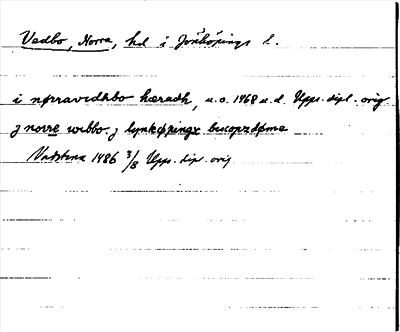 Vedbo, Norra, hd i Jönköpings l.
i nørravidhbo hæradh, u.o. 1468 u.d. Upps. dipl. orig
j norre webbo j lynkøpingx biscopzdøme
Vadstena 1486 3/8 Upps. dipl. orig